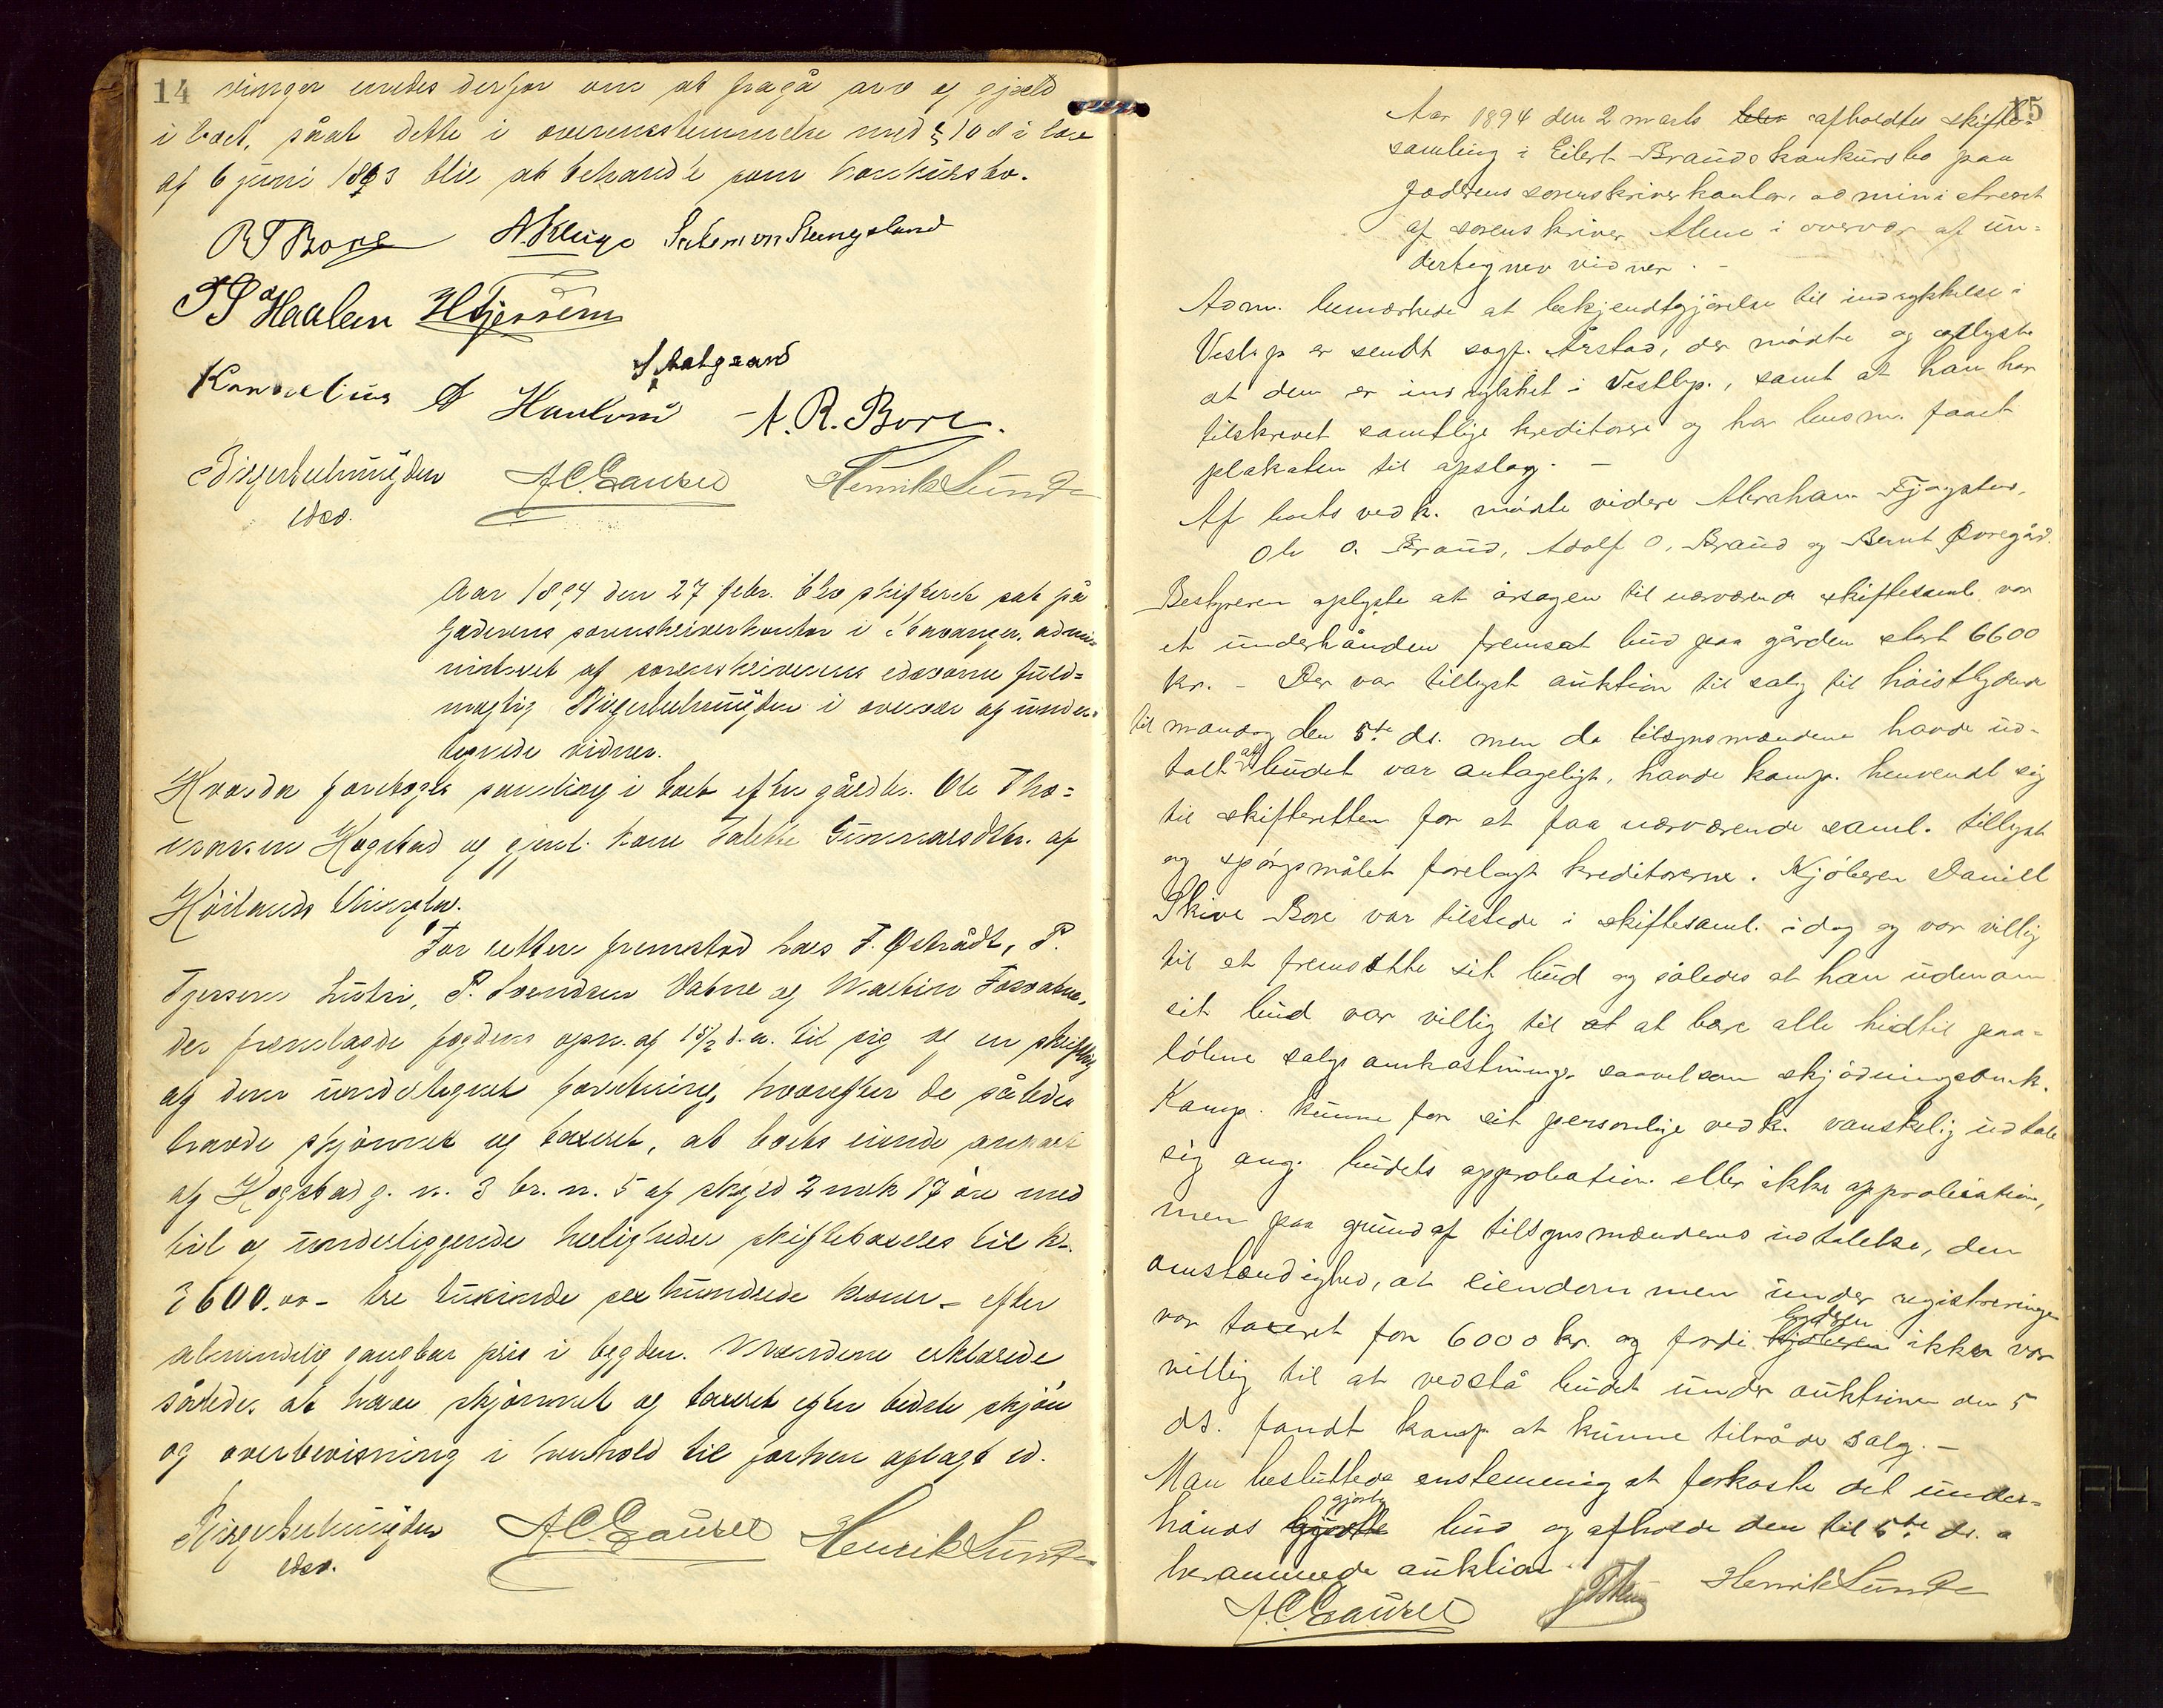 14 vinger enedes derfor om at fragå arv og gjæld
i boet, såat dette i overensstemmelse med § 108 i lov
af 6 juni 1863 blir at behandle som konkursbo.
R T Bore A. Kluge Salemon Stangeland
T S Haaland H Tjessem
S Aatgaard
Kornelius A Haukom A. R. Bore.
Birger
edsv.
A C Gausel Henrik Lunde
Aar 1894 den 27 febr. blev skifteret sat på
Jæderens sorenskriverkontor i Stavanger, admi-
nistreret af sorenskriverens edsvorne fuld-
mægtig Birger i overvær af under-
tegnede vidner.
Hvorda foretoges samling i boet efter gårdbr. Ole Tho-
massen Hogstad og gjenl. kone Talette Gunnarsdtr. af
Höilands thinglag.
For retten fremstod Lars T. Østrådt, P.
Tjessem Lutsi, P. Svendsen Vatne og Martin Fosvatne,
der fremlagde fogdens opn. af 15/2 d. a. til sig og en skriftlig
af dem undertegnet forretning, hvorefter de således
havde skjönnet og taxeret, at boets eiende anpart
af Hogstad g. n. 3 br. n. 5 af skyld 2 mrk 17 øre med
til og underliggende herligheder skiftetaxeres til kr.
3600.00 - tre tusinde sex hundrede kroner - efter
almindelig gangbar pris i bygden. Mændene erklærede
således at have skjönnet og taxeret efter bedste skjön
og overbevisning i henhold til forhen aflagt ed.
Birger
edsv.
A C Gausel Henrik Lunde
15
Aar 1894 den 2 marts blev afholdtes skifte-
samling i Eilert Brauds konkursbo paa
Jæderens sorenskriverkontor, administreret
af sorenskriver i overvær af un-
dertegnev vidner. -
Adm. bemærkede at bekjendtgjörelse til indrykkelse i
Vestlp er sendt sagf. Årstad, der mödte og oplyste
at den er indrykket i Vestlp., samt at han har
tilskrevet samtlige kreditorer og har lensm. faaet
plakaten til opslag. -
Af boets vedk. mödte videre Abraham Fjogstad,
Ole O. Braud, Adolf O. Braud og Bernt Øvregård.
Bestyreren oplyste at årsagen til nærværende skiftesaml. var
et underhånden fremsat bud paa gården stort 6600
kr. - Der var tillyst auktion til salg til höistbydende
til mandag den 5te ds. men da tilsynsmændene havde ud-
talt at budet var antageligt, havde komp. henvendt sig
til skifteretten for at faa nærværende saml. tillyst
og spörgsmålet forelagt kreditorerne. Kjöberen Daniel
Skive Bore var tilstede i skiftesaml. idag og var villig
til at fremsætte sit bud og således at han udenom
sit bud var villig til at at bære alle hidtil paa-
löbne salgs omkostninger saavel som skjödningsomk.
Komp. kunne for sit personlige vedk. vanskelig udtale
sig ang. budets approbation eller ikke approbation,
men paa grund af tilsynsmændenes udtalelse, den
omstændighed, at eiendommen under registreringen
var taxeret for 6000 kr. og fordi kjöberen byderen ikke var
villig til at vedstå budet under auktionen den 5
ds. fandt komp. at kunne tilråde salg. -
Man besluttede enstemmig at forkaste det under-
hånds gjorte gjorte bud og afholde den til 5te ds.
berammede auktion.
A C Gausel Henrik Lunde